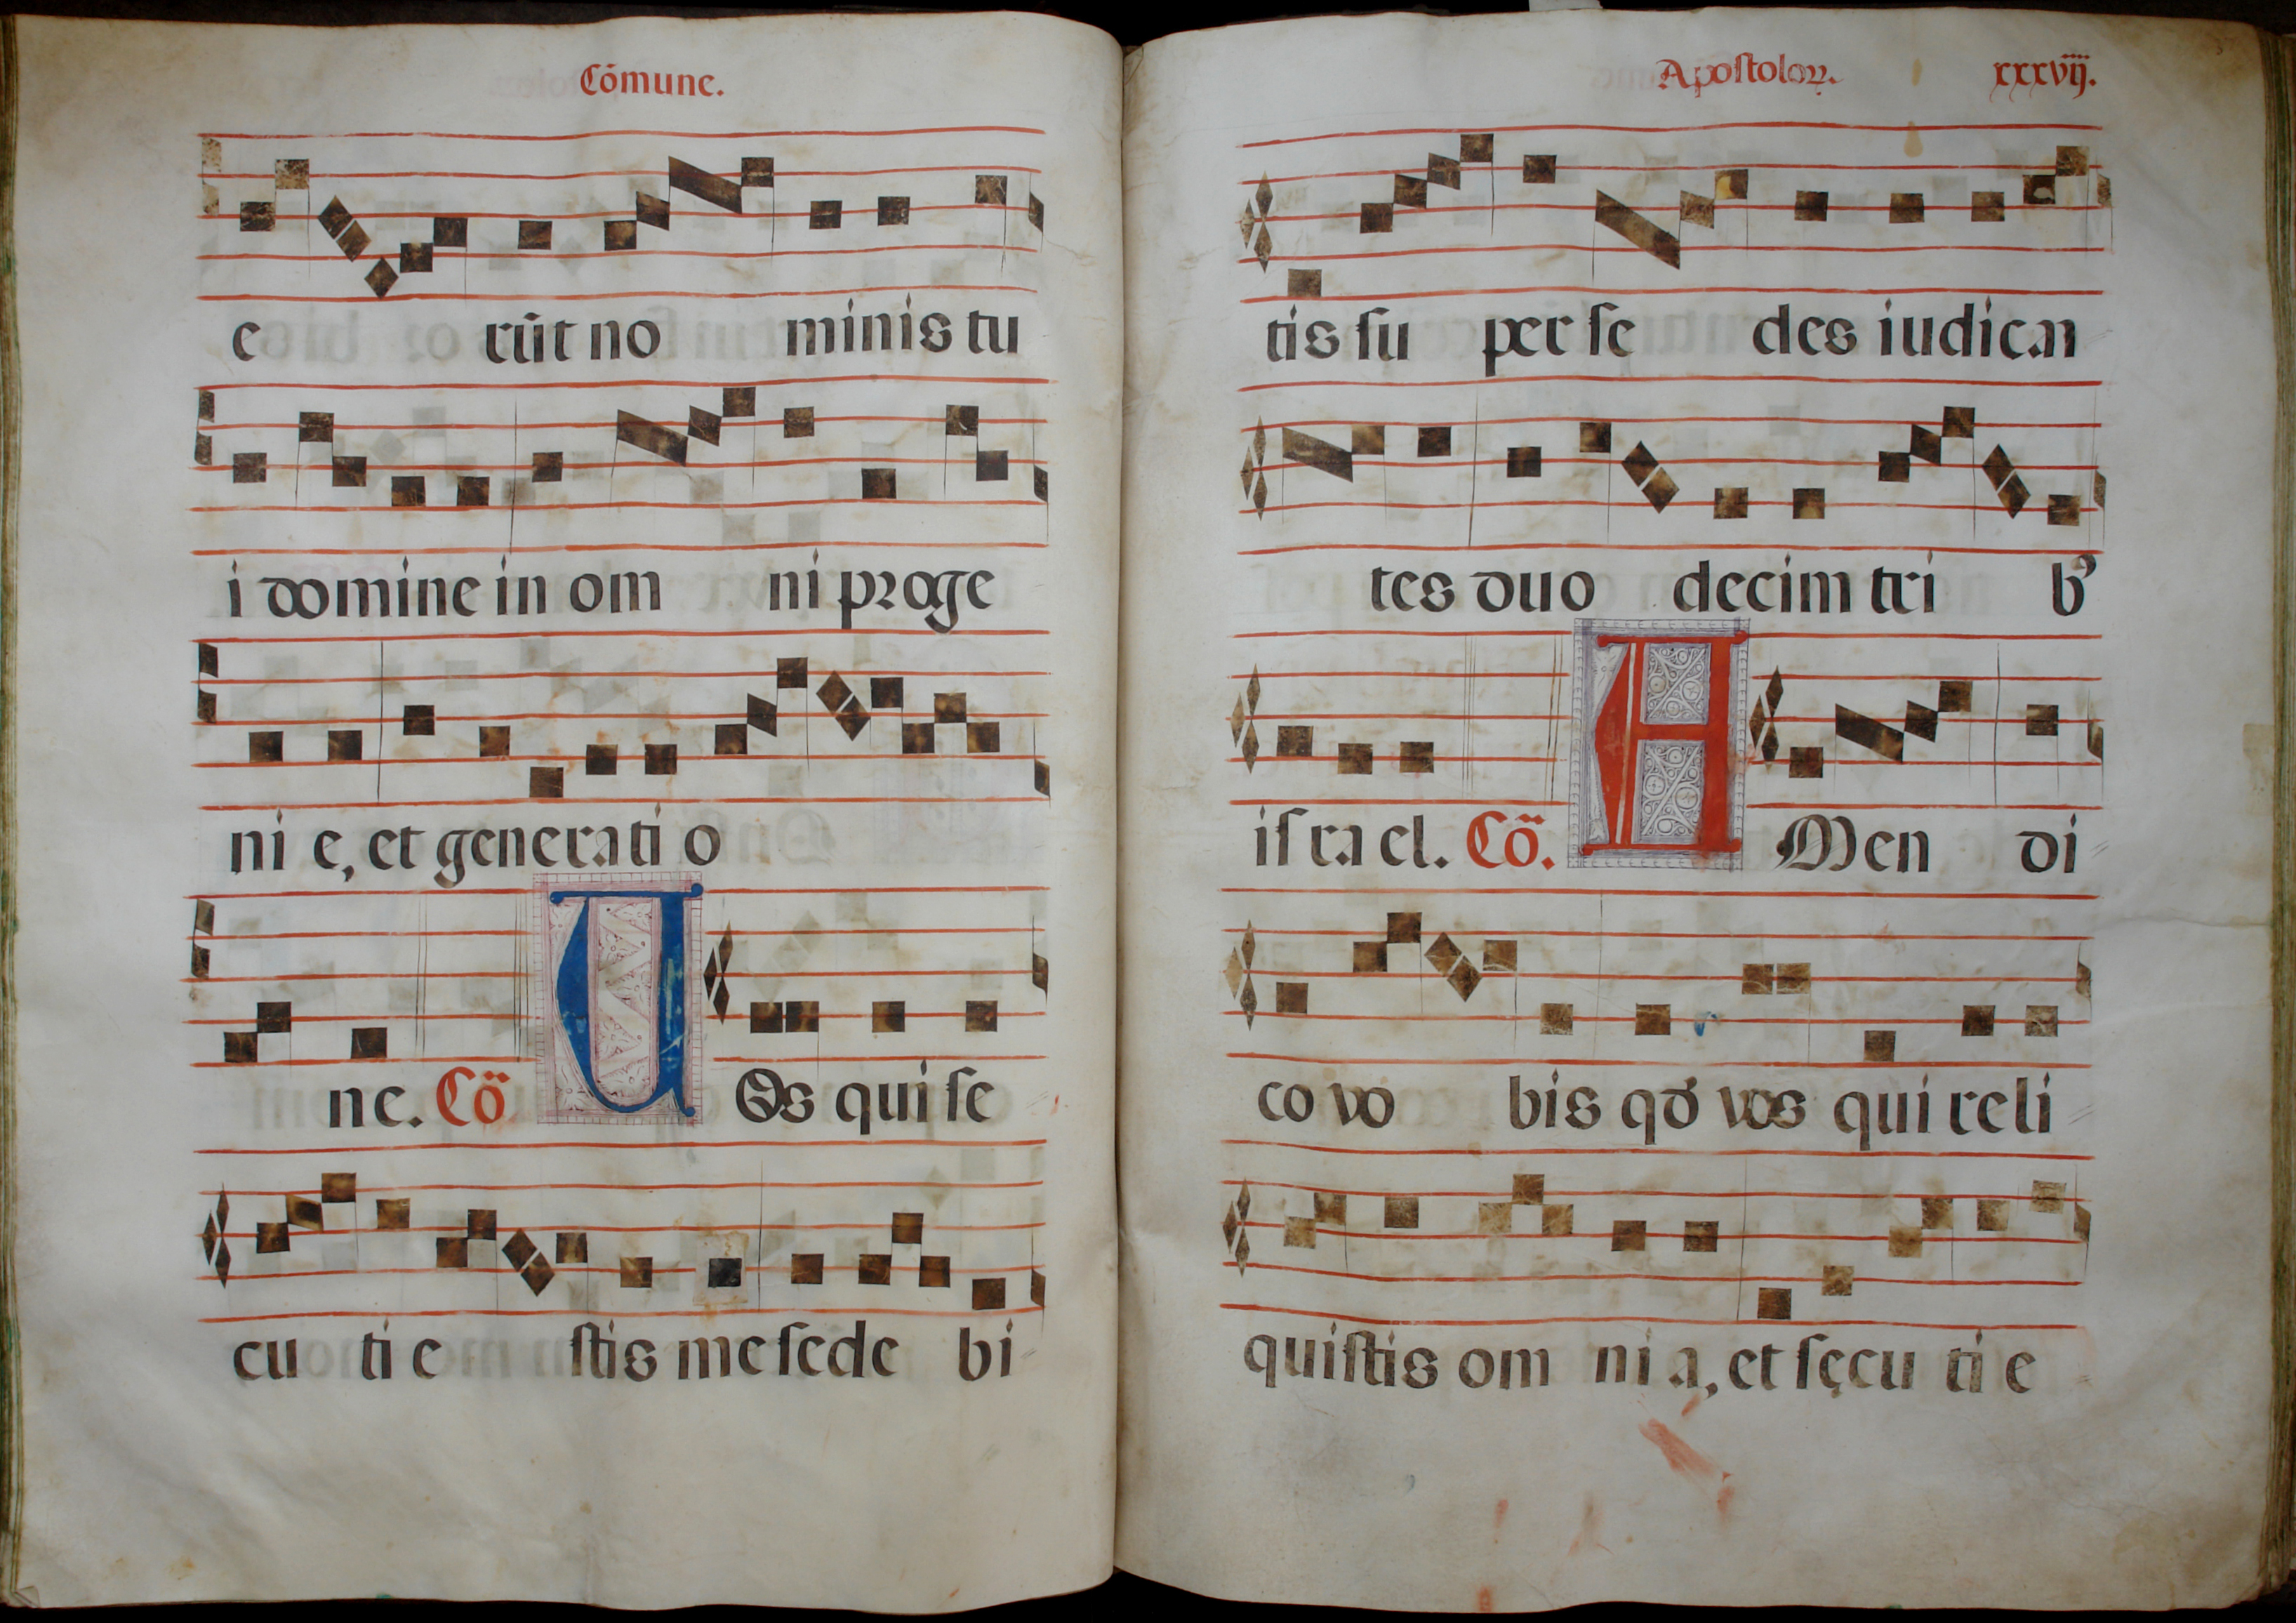 Cōmune.
e rūt no minis tu
i domine in om ni proge
ni e, et generati o
ne. Cō UOs qui se
cu ti e stis me sede bi
Apostoloꝝ. xxxviij.
tis su per se des iudican
tes duo decim tri bꝰ
israel. Cō. AMen di
co vo bis qđ vos qui reli
quistis om ni a, et sęcu ti e